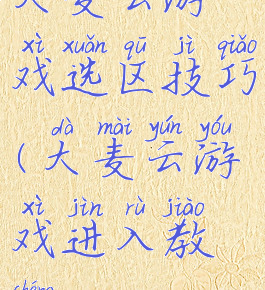 大麦云游
xì xuǎn qū jì qiǎo
戏选区技巧
dà mài yún yóu
(大麦云游
xì jìn rù jiào
戏进入教
chéng